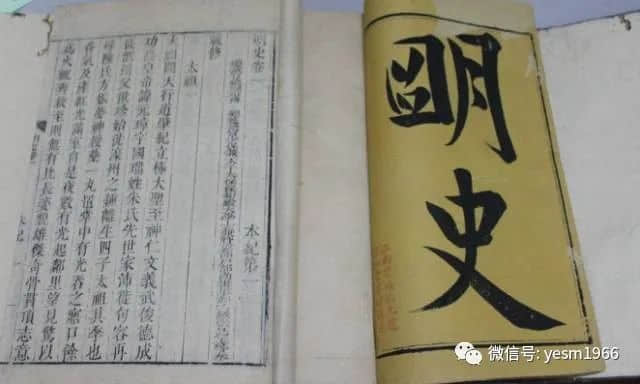 明史卷一
本紀第一
敕修
太祖一
太祖開天行道肇紀立極大聖至神仁文義武俊德成
功高皇帝諱元璋字國瑞姓朱氏先世家沛徙句容再
徙泗州父世珍始徙濠州之鍾離生四子太祖其季也
母陳氏方娠夢神授藥一丸置掌中有光吞之寤口餘
香氣及產紅光滿室自是夜數有光起鄰里望見驚以
為火輒奔救至則無有比長姿貌雄傑奇骨貫頂志意
朙史
微信号: yesm1966